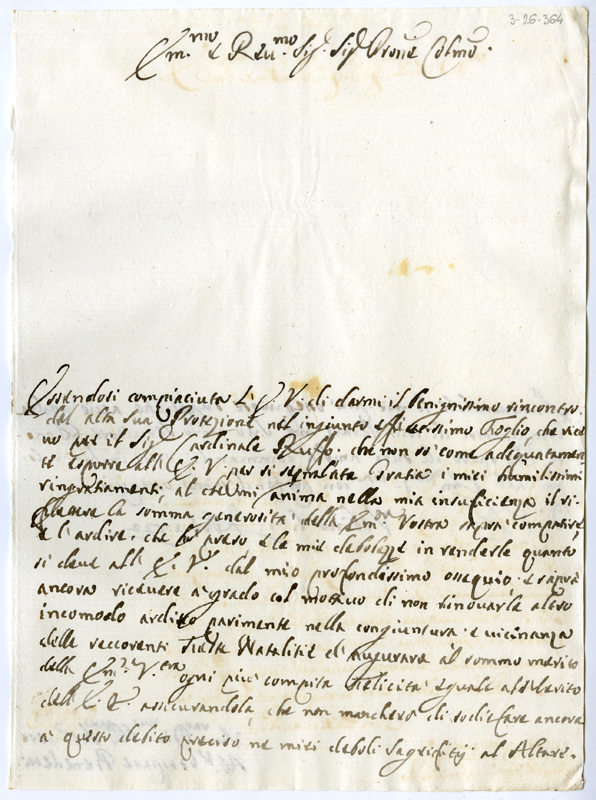 3-26-364
Em.mo e Reu.mo Sig.r Sig.r Prone Colmo.
Essendosi compiaciuta l'E. V. di darmi il benignissimo rincontro
dal alta sua Protezione nel ingiunto efficacissimo foglio, che rice
uo per il Sig.r Cardinale Ruffo, che non so come adequatamen
te esporre all'E. V. per si segnalata Gratia i miei humilissimi
ringratiamenti, al che mi anima nella mia insuficienza il ri
flettere la somma generosita della Em.za Vostra saprà compatire
e l'ardire, che hò preso e le mie debolezze in renderle quanto
si deue all'E. V. dal mio profondissimo ossequio, e saprà
ancora riceuere à grado col motiuo di non rinouarle altro
incomodo ardito parimente nella congiuntura e uicinanza
delle raccorenti feste Natalitie d'augurare al sommo merito
dell'Em.za V.ra ogni più compita felicità eguale al merito
dell'E. V. assicurandola, che non mancherò di sodisfare ancora
à questo debito preciso ne miei deboli Sagrifitij al Altare.